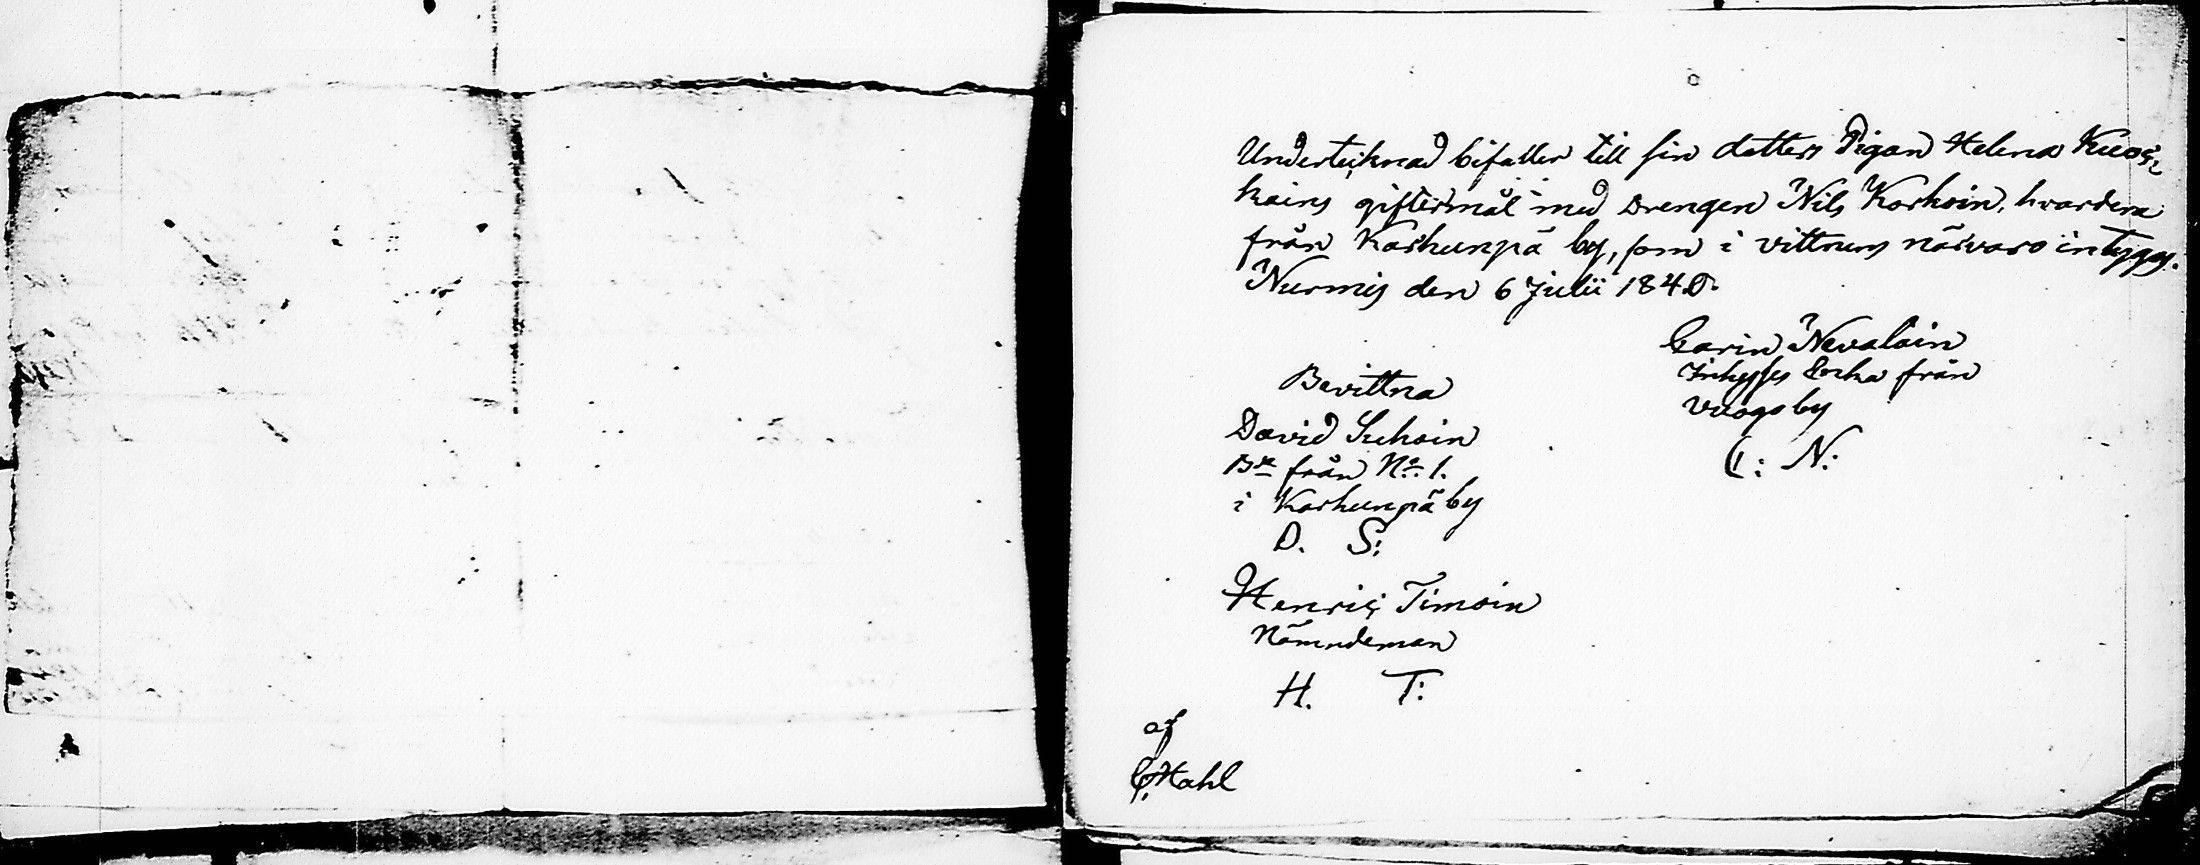 Undertecknad bifaller till sin dotters Pigan Helena Kuos-
kains giftermål med Drengen Nils Korhoin, hvardera
från Karhunpä by, som i vittnens närvaro intygas.
Nurmis den 6 Julii 1840.
Carin Nevalain
Inhyses Enka från
Vuogoby
C: N:
Bevittna
David Suhoin
Bde från No 1.
i Karhunpä by
D. S:
Henric Timoin
Nämndeman
H. T:
af
C. Hahl